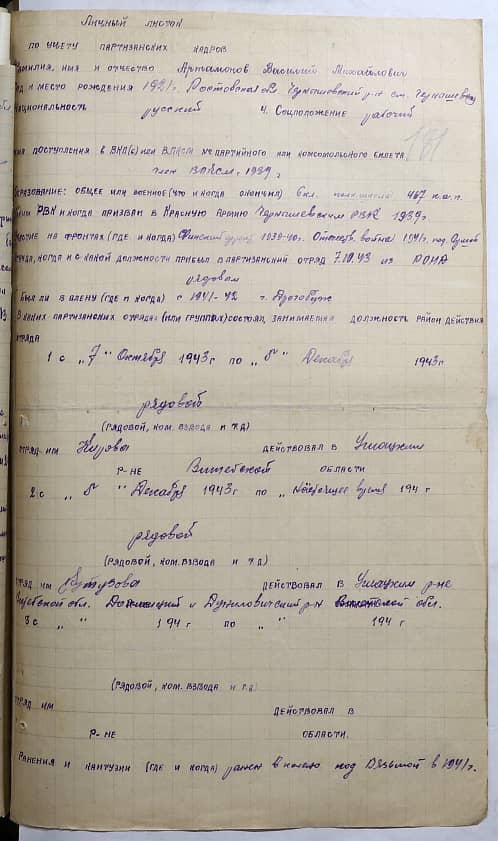 Личный листок
по учету партизанских кадров
Фамилия, имя и отчество Артамонов Василий Михайлович
Год и место рождения 1921г. Ростовская обл.
Национальность русский 4. Соцположение рабочий
181
поступления в ВКП(б) или ВЛКСМ № партийного или комсомольского билета
член ВЛКСМ, 1939г
Образование: общее или военное (что и когда окончил) 6кл. 467 к.а.п.
Каким РВК и когда призван в Красную Армию РВК 1939г.
Участие на фронтах (где и когда) Финский фронт 1939-40г. Отечеств. война 1941г. под
откуда, когда и с какой должности прибыл в партизанский отряд 7.10.43 из РОНА
рядовым
Был ли в плену (где и когда) с 1941-42 г. Дрогобуж
В каких партизанских отрядах (или группах) состоял, занимаемая должность район действия
отряда
1 с „7" Октября 1943г по „5" Декабря 1943г
рядовой
(рядовой, ком. взвода и т.д)
отряд им Кирова действовал в Ушацким
р-не Витебской области
2 с „5" Декабря 1943г по „ Настоящее время 194 г
рядовой
(рядовой, ком. взвода и т.д)
отряд им Кутузова действовал в Ушацким р-не
Витебской обл. и Дуниловичский р-н обл.
3 с „ " 194 г по „ " 194 г
(рядовой, ком. взвода и т.д)
отряд им действовал в
р-не области.
Ранения и контузии (где и когда) ранен в колено под Вязьмой в 1941г.